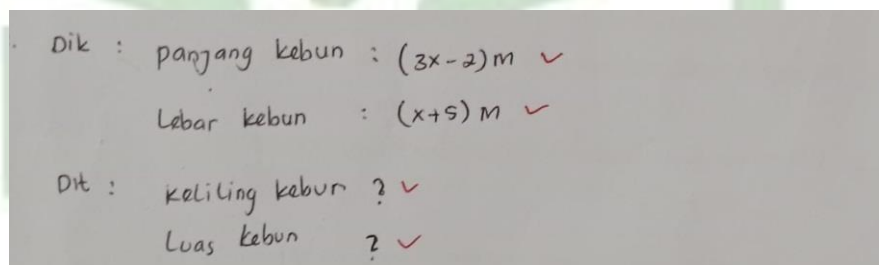 Dik : Panjang kebun : (3x-2) m ✓
Lebar kebun : (x+5) m ✓
Dit : Keliling kebun ? ✓
Luas kebun ? ✓